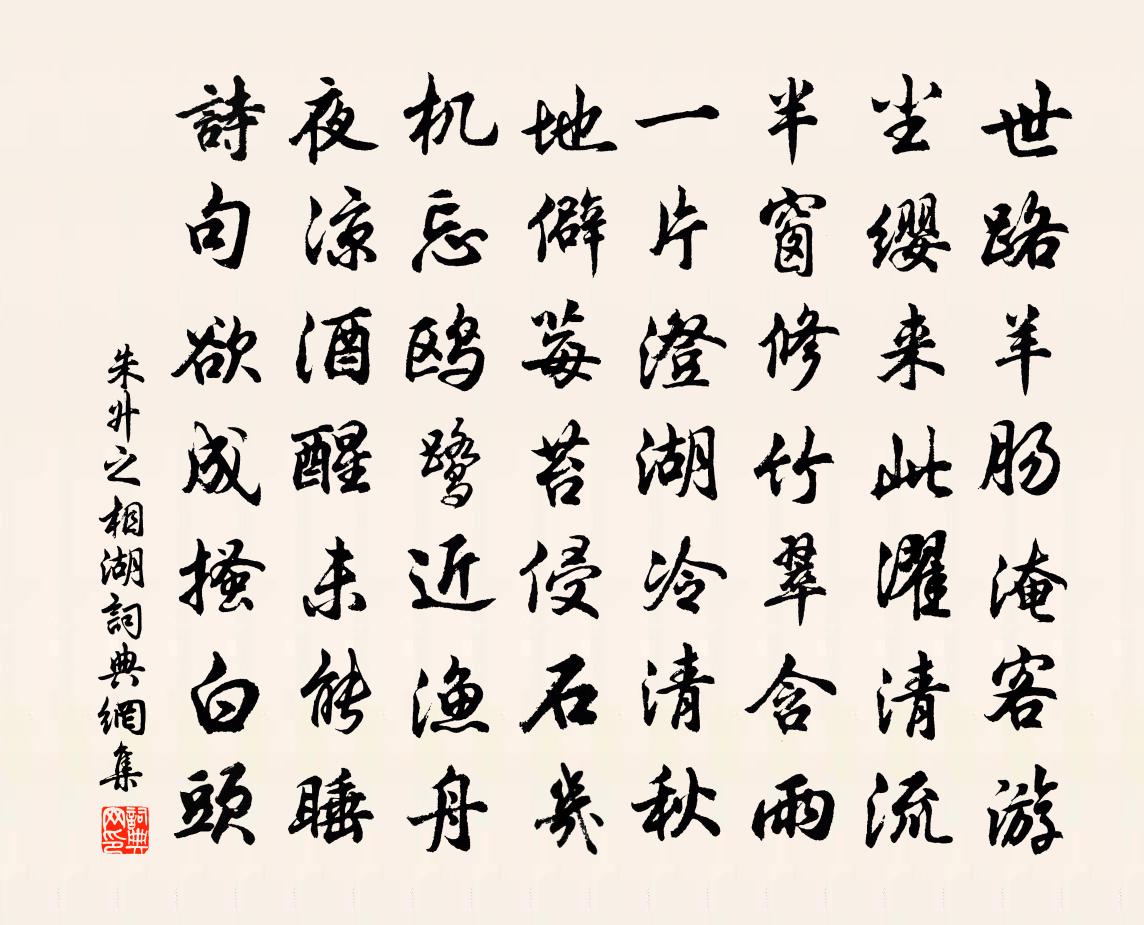 世路羊肠淹客游
尘缨来此濯清流
半窗修竹翠含雨
一片澄湖冷清秋
地僻莓苔侵石几
机忘鸥鹭近渔舟
夜凉酒醒未能睡
詩句欲成搔白頭
朱升之相湖詞典網集
詞典网印